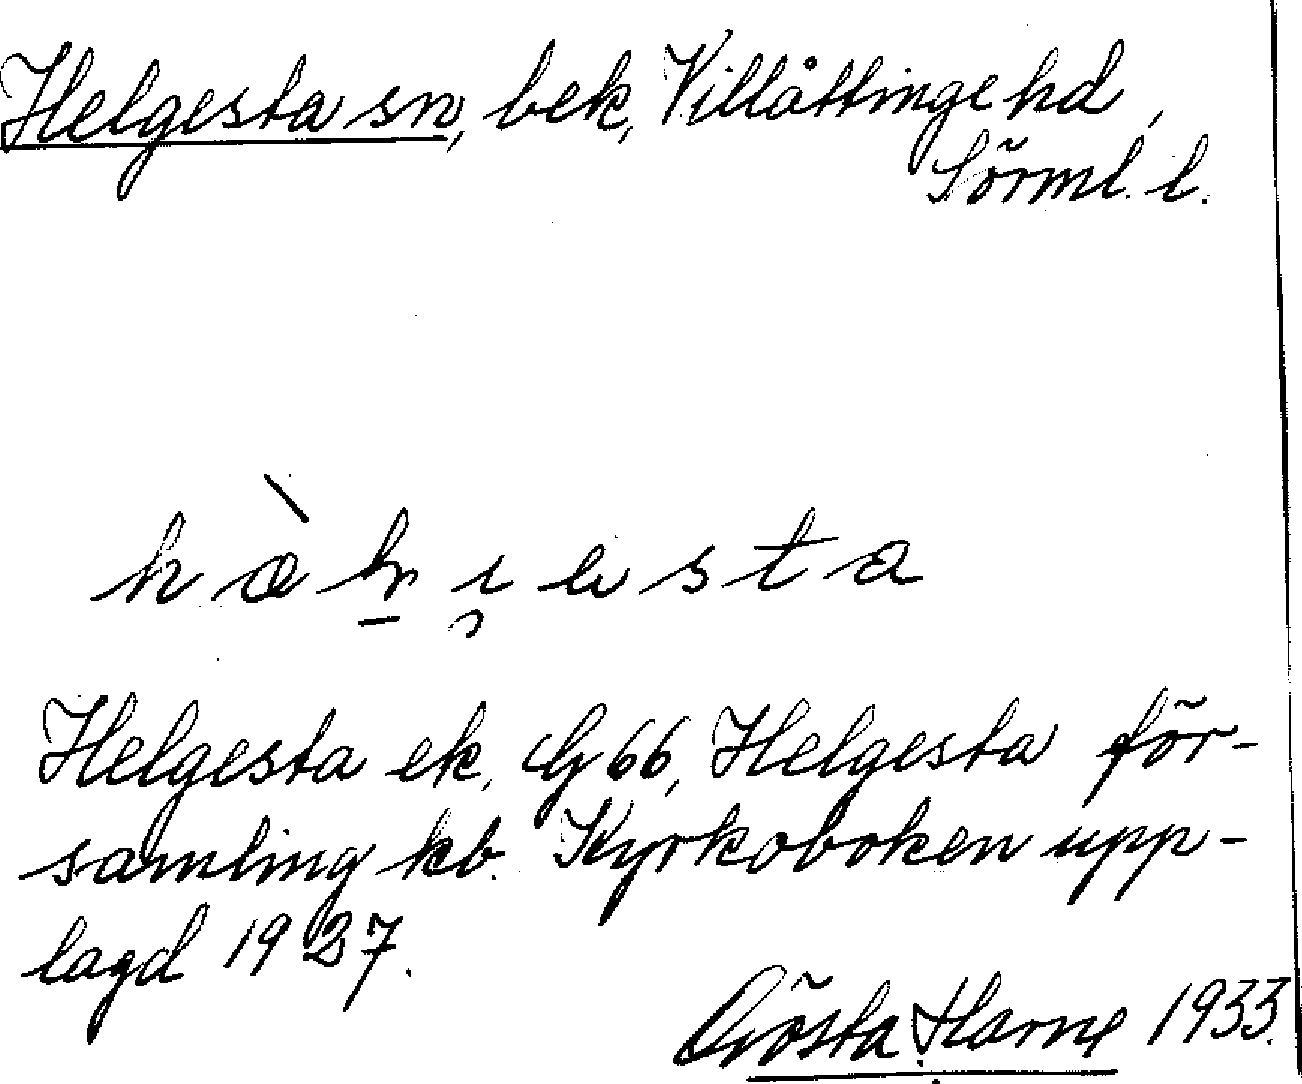 Helgesta sn, bek, Villåttinge hd,
Sörml. l.
Helgesta ek, G 66, Helgesta för-
samling kb. Kyrkoboken upp-
lagd 1927.
Gösta Harne 1933.